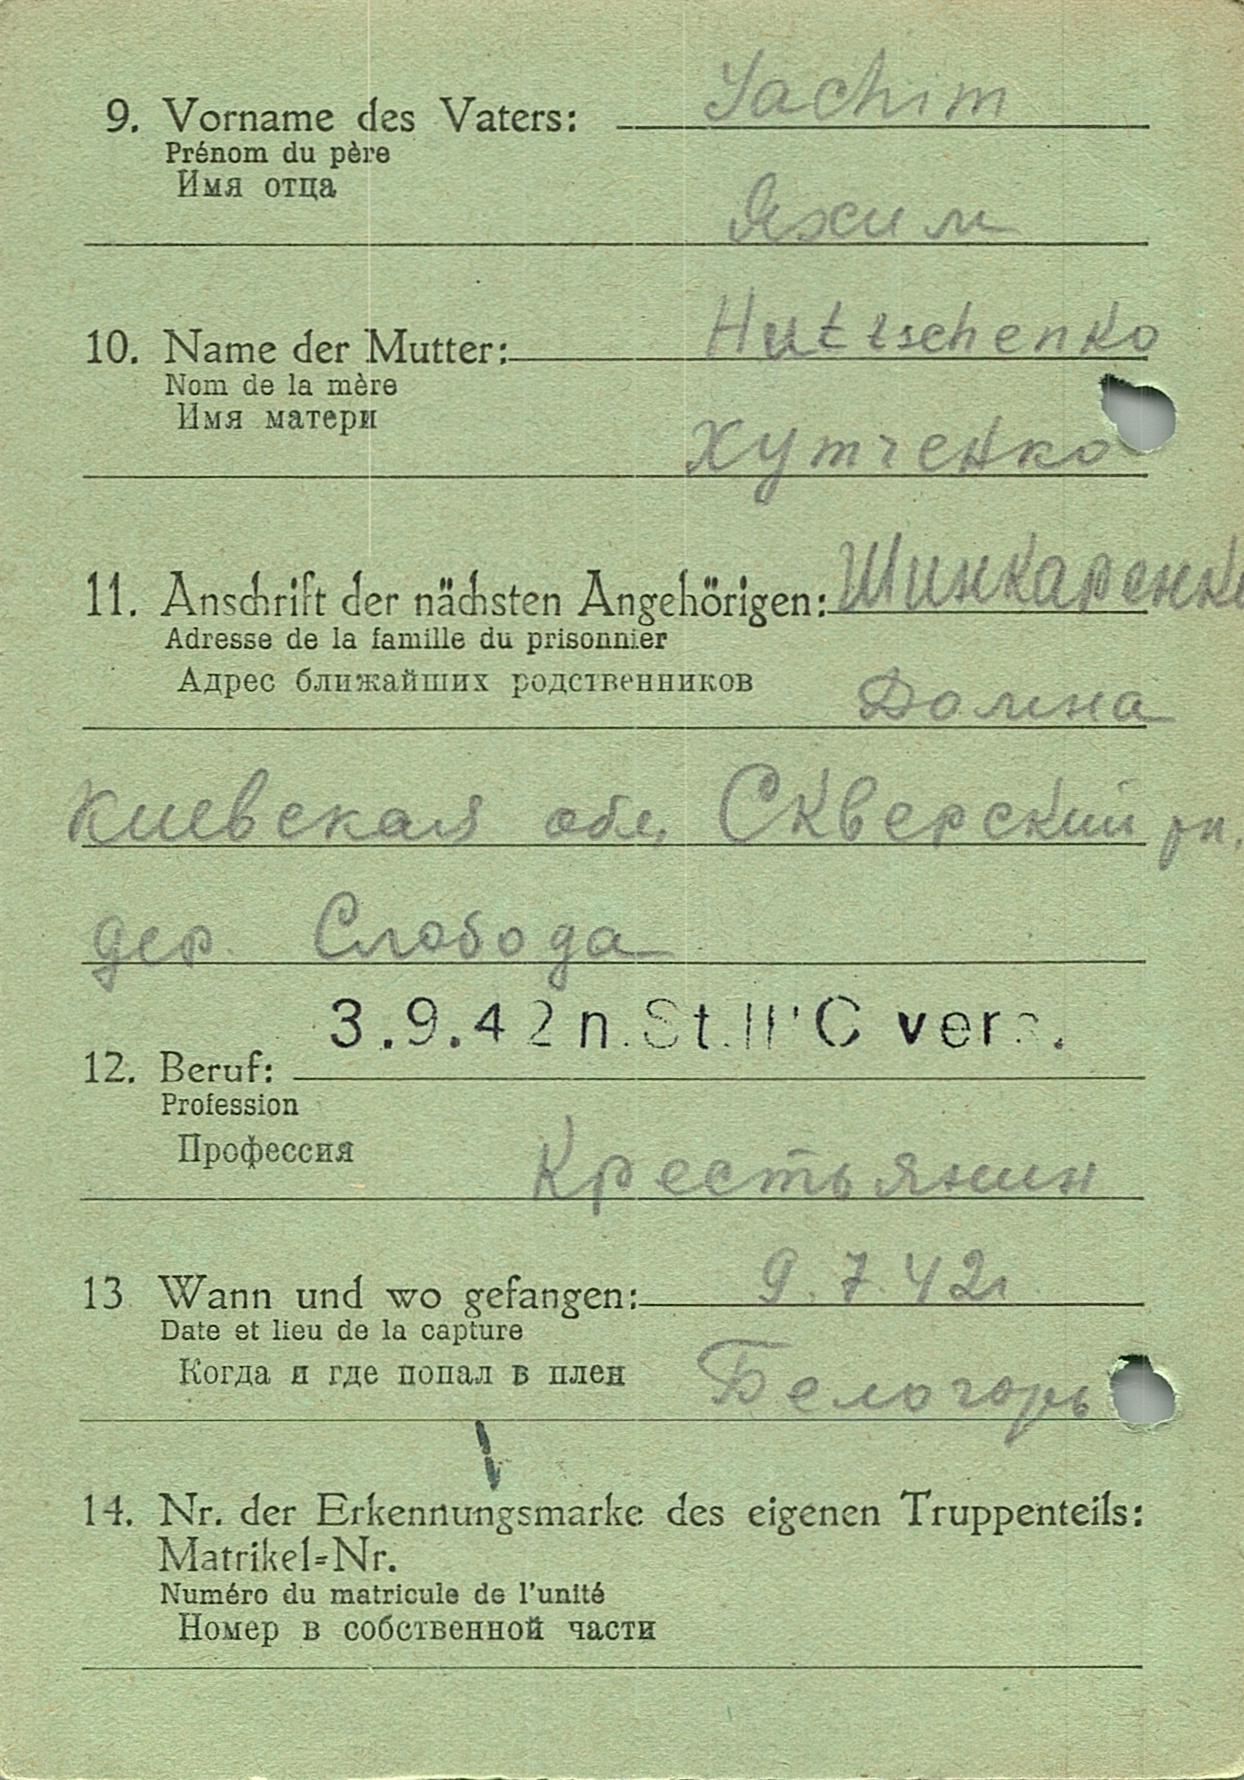 Jachim
9. Vorname des Vaters:
Prénom du père
Имя отца
Яхим
Huttschenko
10. Name der Mutter:
Nom de la mère
Имя матери
Хутченко
11. Anschrift der nächsten Angehörigen: Шинкаренко
Adresse de la famille du prisonnier
Адрес ближайших родственников
Домна
Киевская обл, Скверский рн.
дер. Слобода
3.9.42 n.St. II'C vers.
12. Beruf:
Profession
Профессия
Крестьянин
13 Wann und wo gefangen: 9.7.42г
Date et lieu de la capture
Когда и где попал в плен
Белогорь
14. Nr. der Erkennungsmarke des eigenen Truppenteils:
Matrikel=Nr.
Numéro du matricule de l'unité
Номер в собственной части